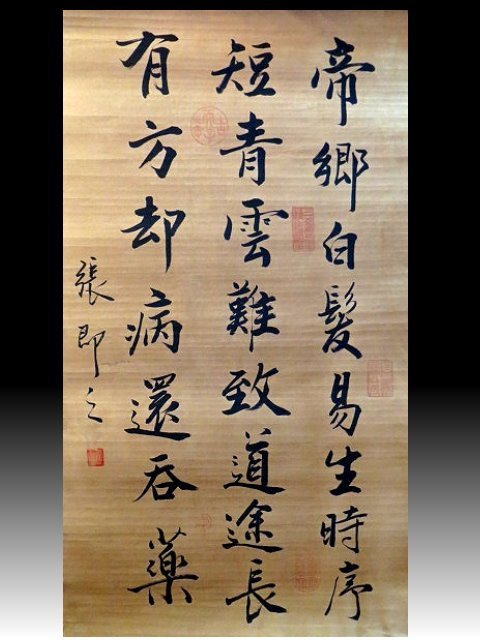 帝鄉白髮易生時序
短青雲難致道途長
有方却病還吞藥
張即之